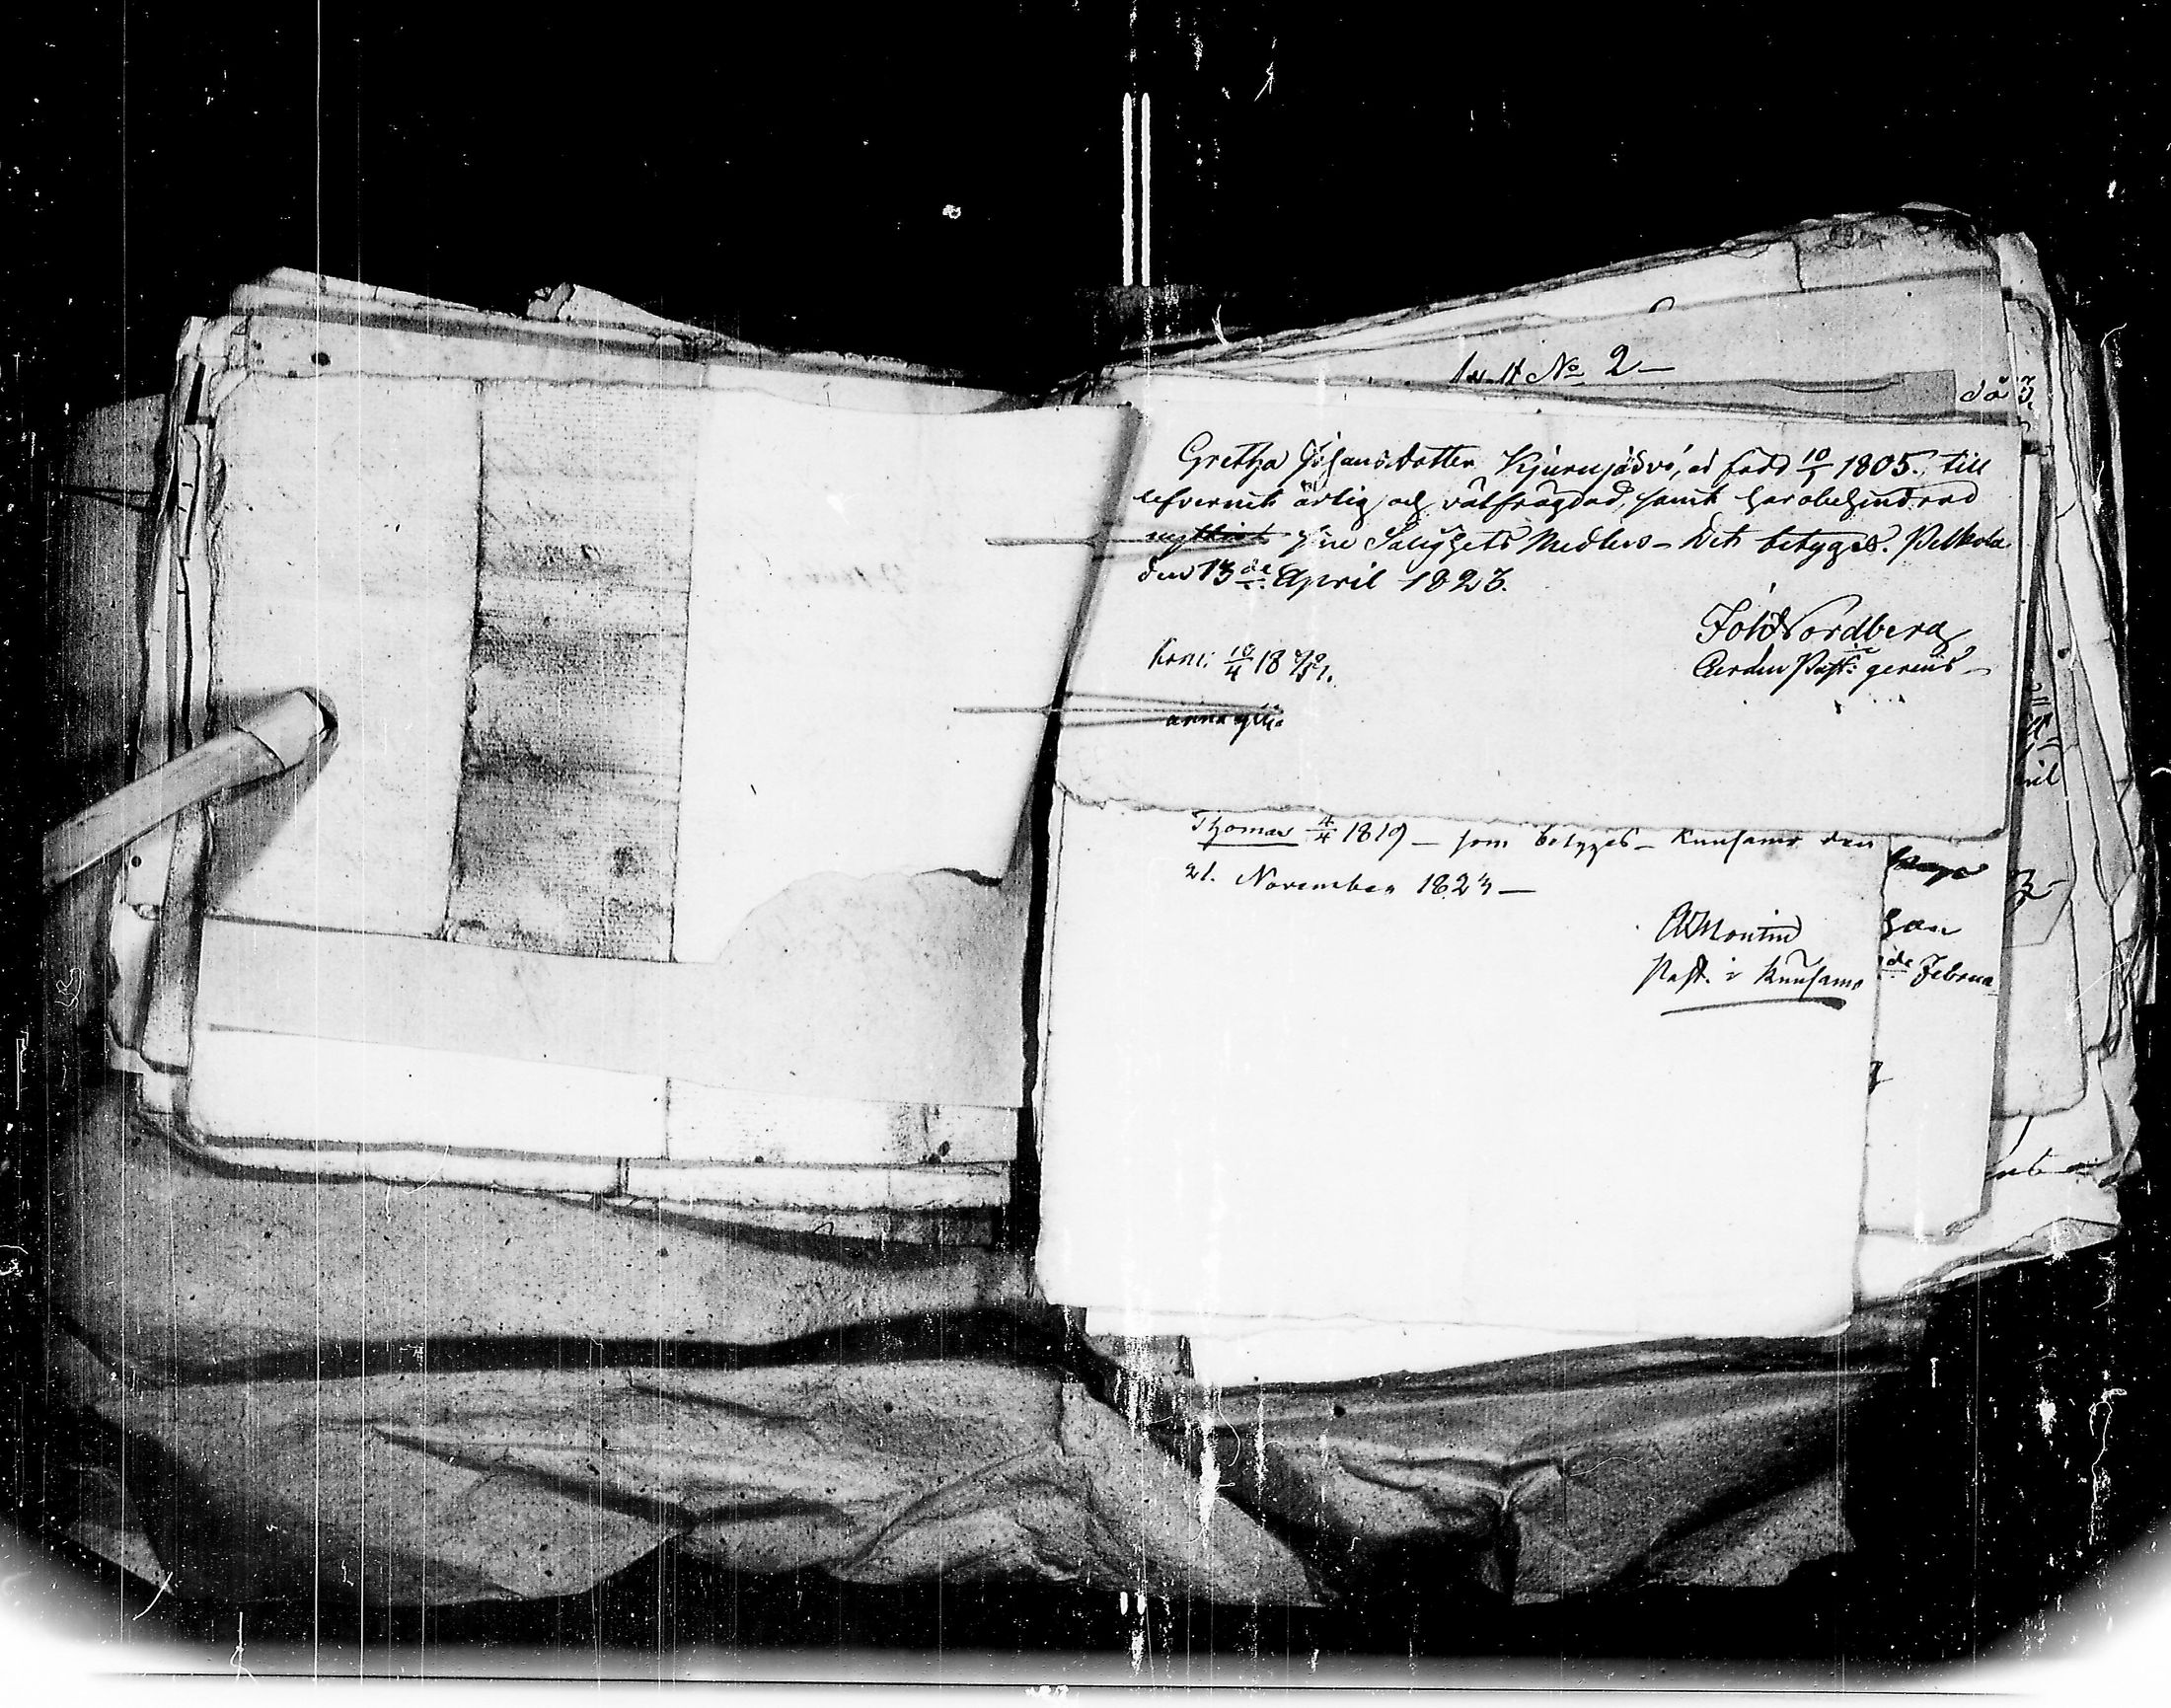 No 2
då
Gretha Johansdotter Kjurujärvi, är född 10/1 1805. till
lefvernet ärlig och välfrägdad, samt har obehindrad
nyttjat sine Salighets Medlen – Det betygas. Pelkola
den 13de April 1823.
Joh Nordberg
Past: gerens
kom: 10/4 18
Thomas 4/4 1819 – som betygas – Kuusamo den
21. November 1823 –
Montin
Past. i Kuusamo
han
de Februa